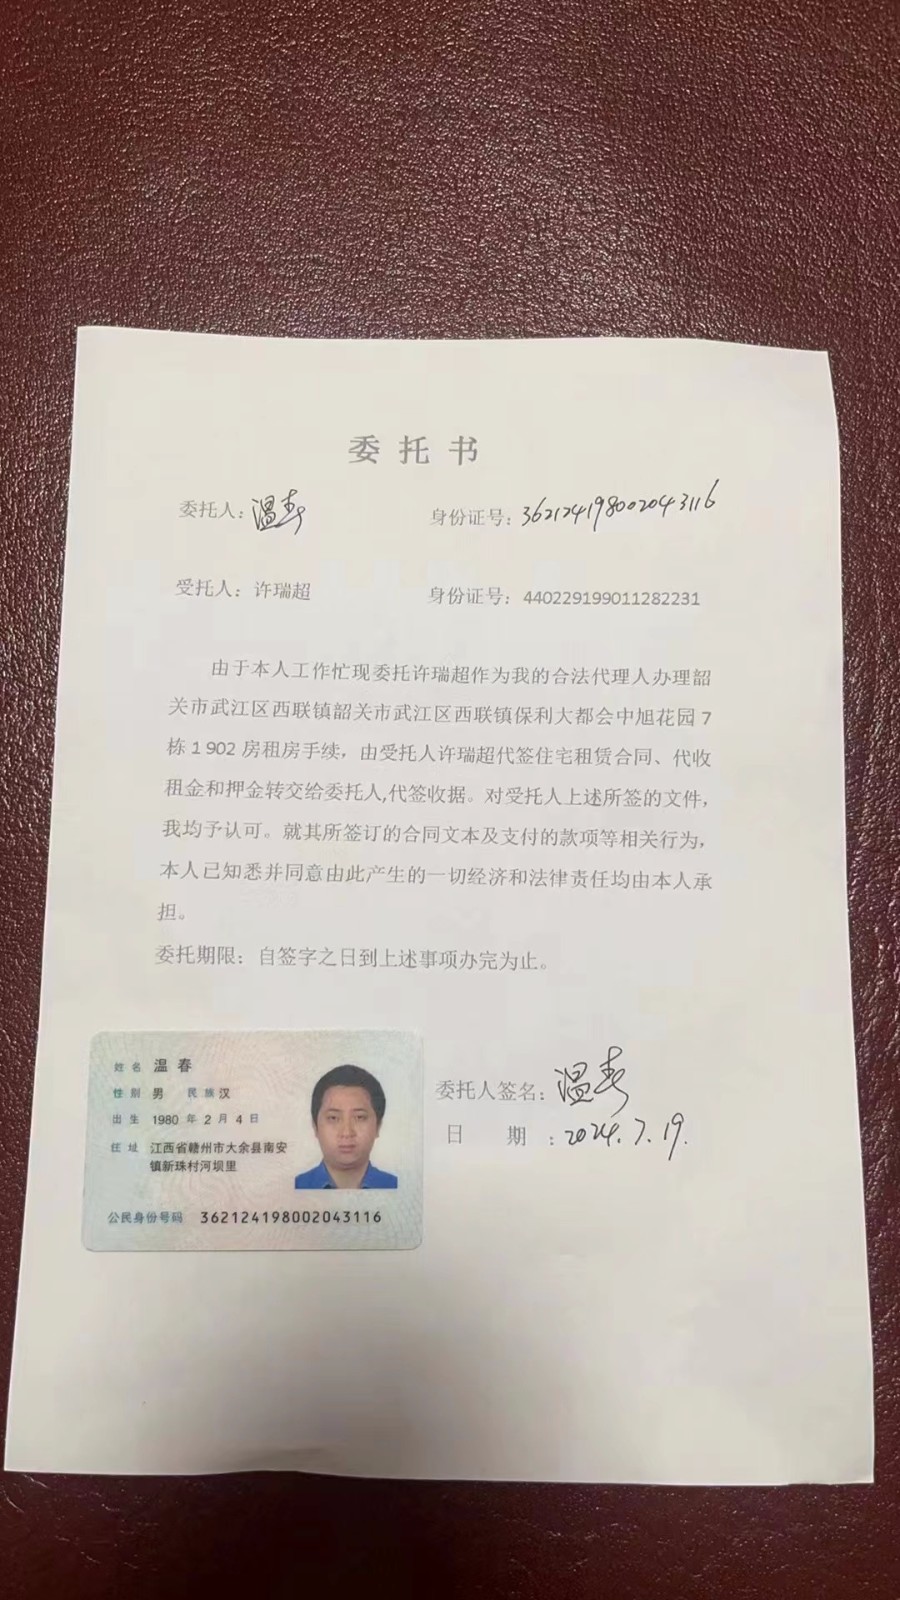 委托书
委托人：温春 身份证号：362124198002043116
受托人：许瑞超 身份证号：440229199011282231
由于本人工作忙现委托许瑞超作为我的合法代理人办理韶
关市武江区西联镇韶关市武江区西联镇保利大都会中旭花园 7
栋 1 902 房租房手续，由受托人许瑞超代签住宅租赁合同、代收
租金和押金转交给委托人,代签收据。对受托人上述所签的文件，
我均予认可。就其所签订的合同文本及支付的款项等相关行为，
本人已知悉并同意由此产生的一切经济和法律责任均由本人承
担。
委托期限：自签字之日到上述事项办完为止。
姓名 温春
性别 男 民族 汉
出生 1980 年 2 月 4 日
住址 江西省赣州市大余县南安
镇新珠村河坝里
公民身份号码 362124198002043116
委托人签名：温春
日 期：2024.7.19.